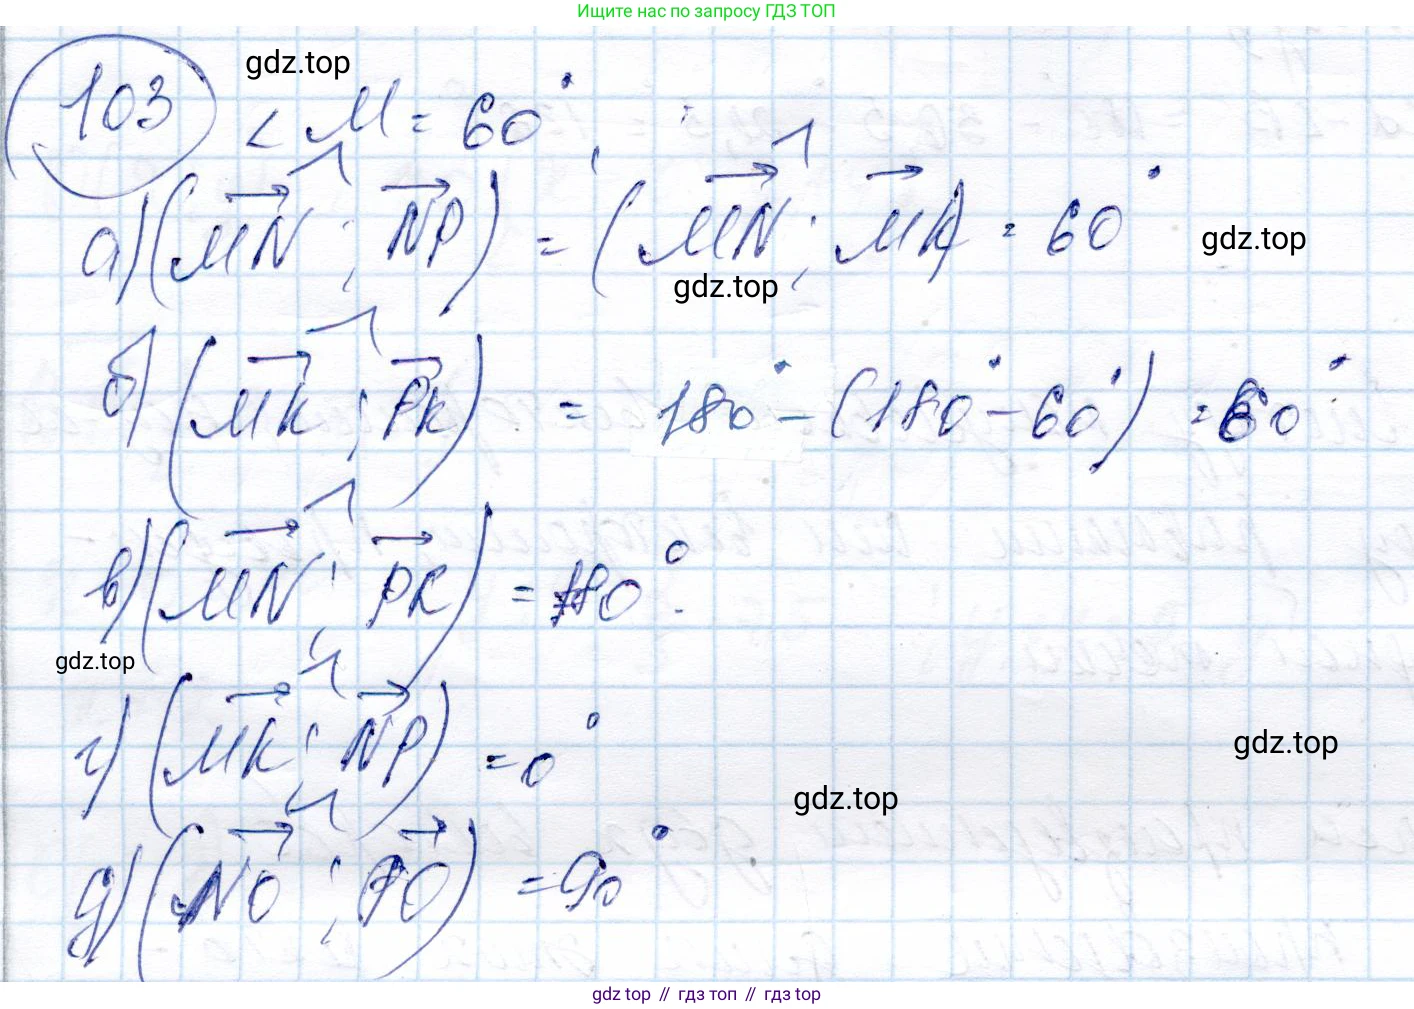 Ищите нас по запросу ГДЗ ТОП
103 gdz.top
< M = 60°,
а) (MN ; NP) = (MN ; MK) = 60° gdz.top
gdz.top
б) (MK ; PK) = 180° - (180° - 60°) = 60°
в) (MN ; PK) = 180°.
gdz.top
г) (MK ; NP) = 0° gdz.top
gdz.top
д) (NO ; PO) = 90°
gdz top // гдз топ // гдз top